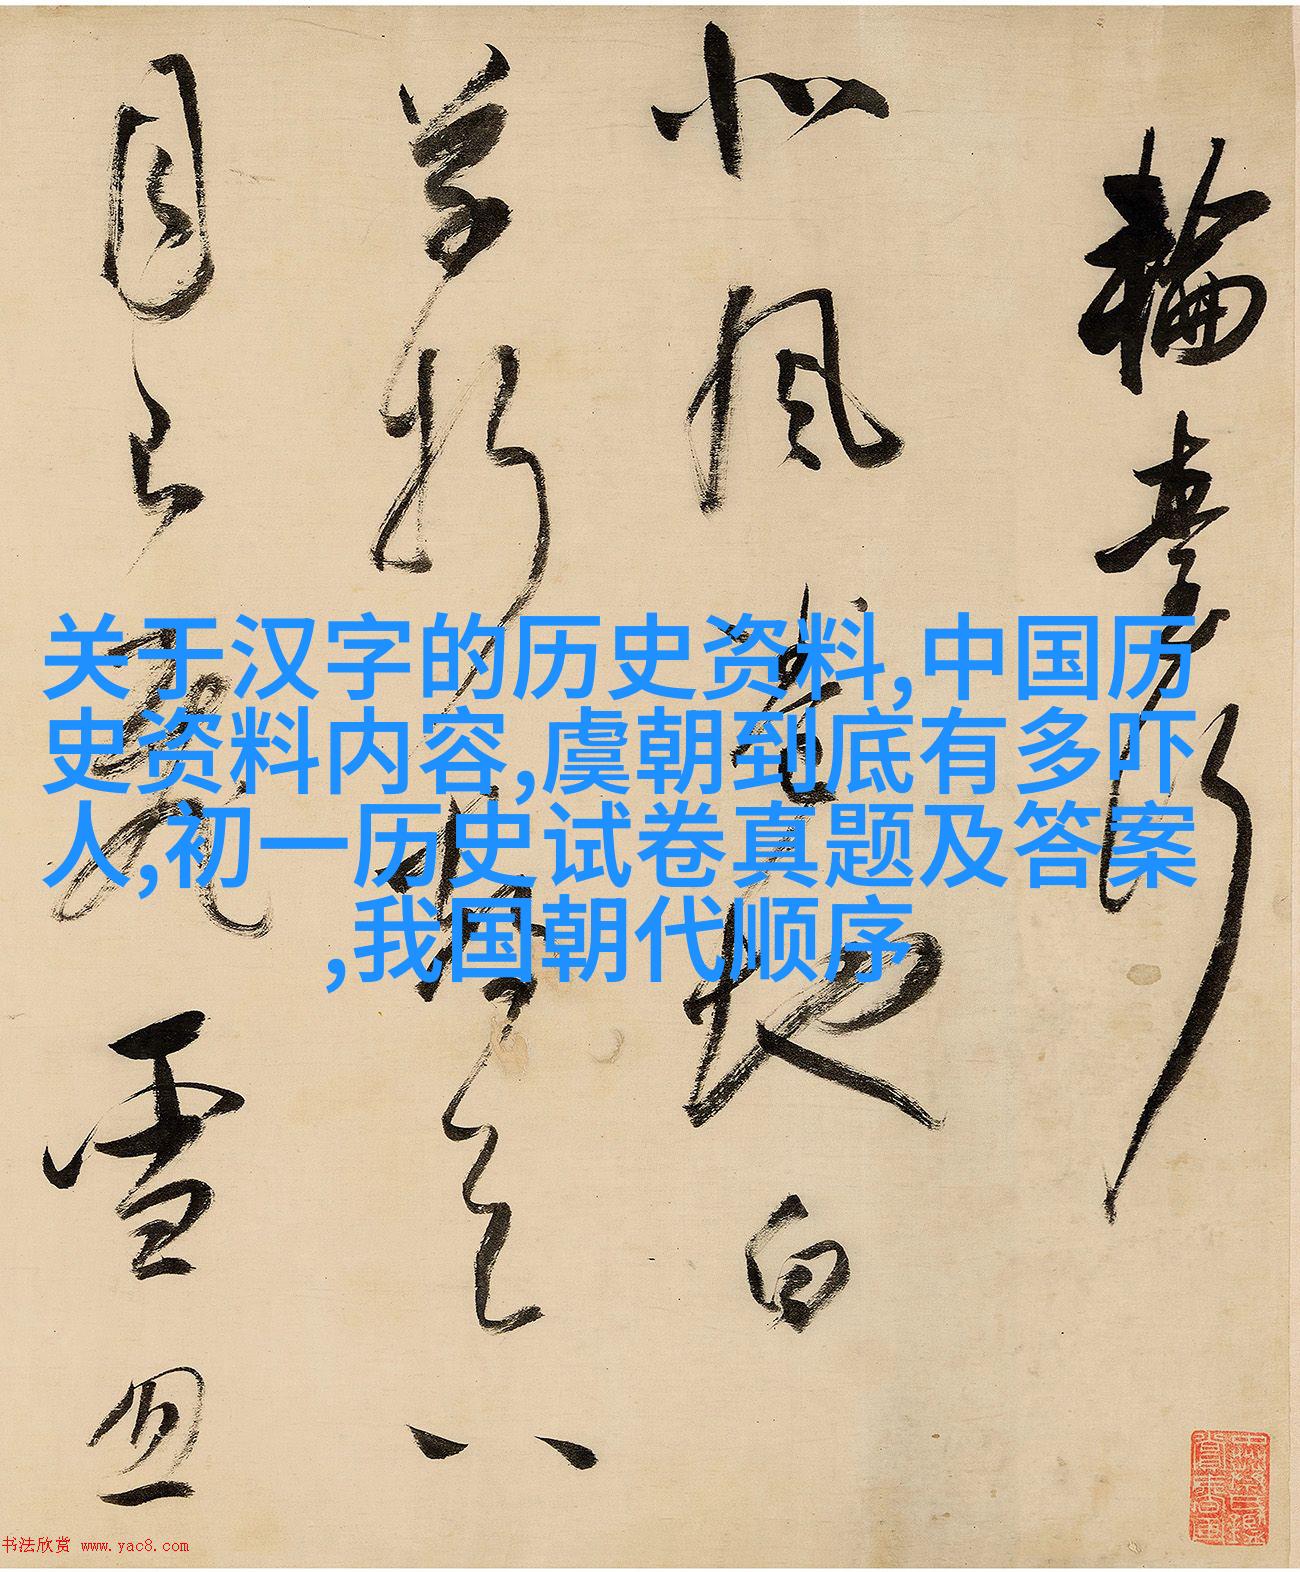 关于汉字的历史资料,中国历
史资料内容,虞朝到底有多吓
人,初一历史试卷真题及答案
,我国朝代顺序
輪臺行
北風捲地白
草折胡天八
月即飛雪
书法欣赏 www.yac8.com